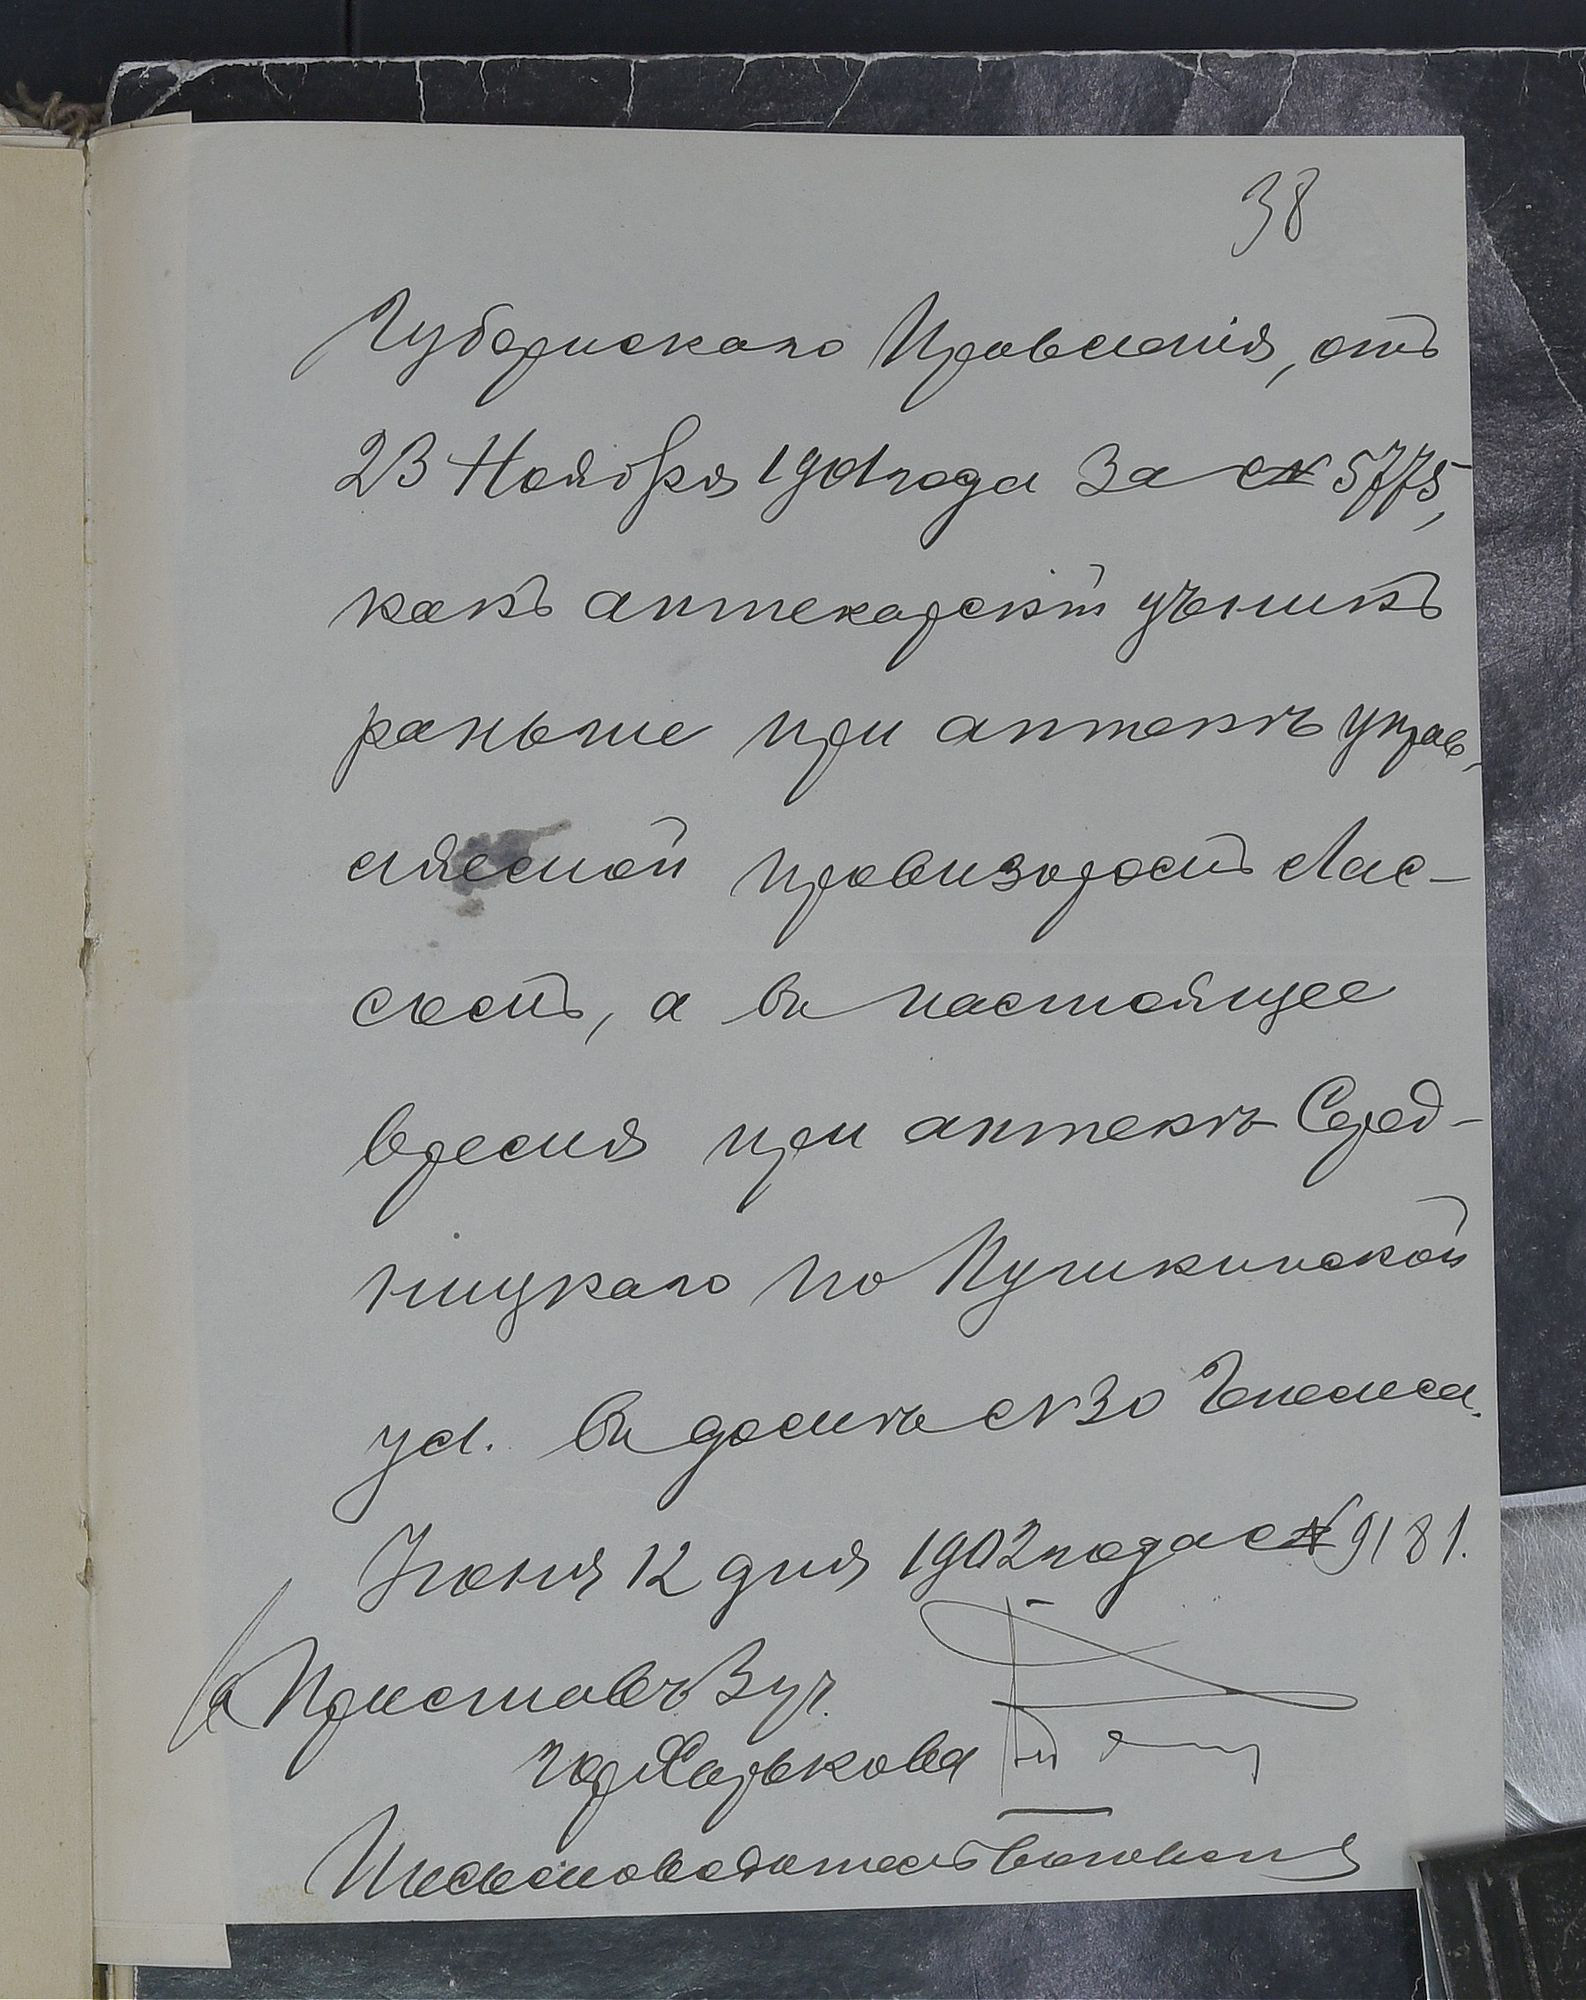 38
Губернскаго Правленія, отъ
23 Ноября 1901 года за № 5775,
какъ аптекарскій ученикъ
раньше при аптекѣ управ-
ляемой провизоромъ Лас-
скомъ, а въ настоящее
время при аптекѣ Серед-
ницкаго по Пушкинской
ул. въ домѣ № 30
Іюня 12 дня 1902 года № 9181.
Приставъ 3 уч.
гор. Харькова
Письмоводитель